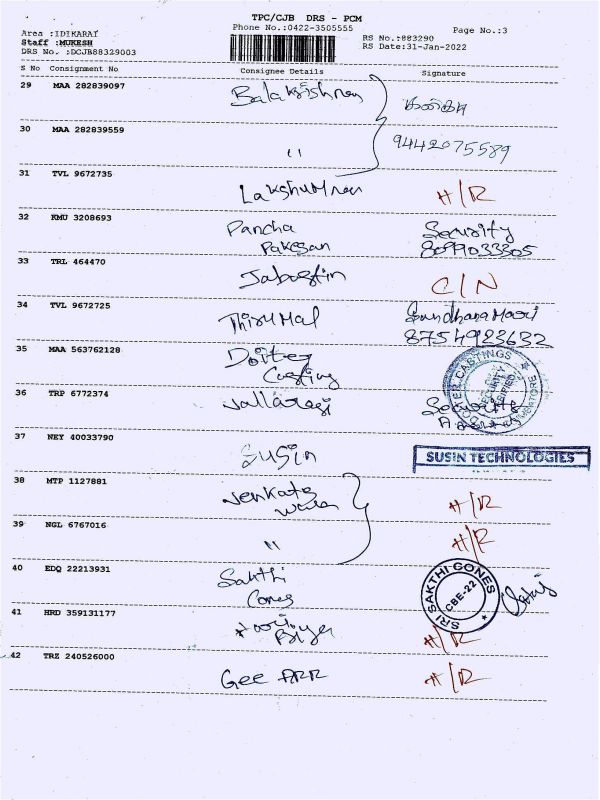 TPC/CJB DRS - PCM
Phone No.:0422-3505555
Page No.:3
Area :IDIKARAI
Staff :MUKESH
DRS No. :DCJB88329003
RS No.:883290
RS Date:31-Jan-2022
S No Consignment No Consignee Details Signature
29 MAA 282839097 Balakrishnan
30 MAA 282839559 "
9442075589
31 TVL 9672735 Lakshumnan H/R
32 KMU 3208693 Pancha Security
Pakesan 8099033305
33 TRL 464470 Jabastin C/N
34 TVL 9672725 Thirumal
8754923632
35 MAA 563762128
Casting
CASTINGS
SECURITY
36 TRP 6772374 Security
37 NEY 40033790 Susin
SUSIN TECHNOLOGIES
38 MTP 1127881 H/R
39 NGL 6767016 " H/R
40 EDQ 22213931 Sakthi
Cones
SRI SAKTHI GONES
CBE-22
41 HRD 359131177 H/R
42 TRZ 240526000 Gee ARR H/R